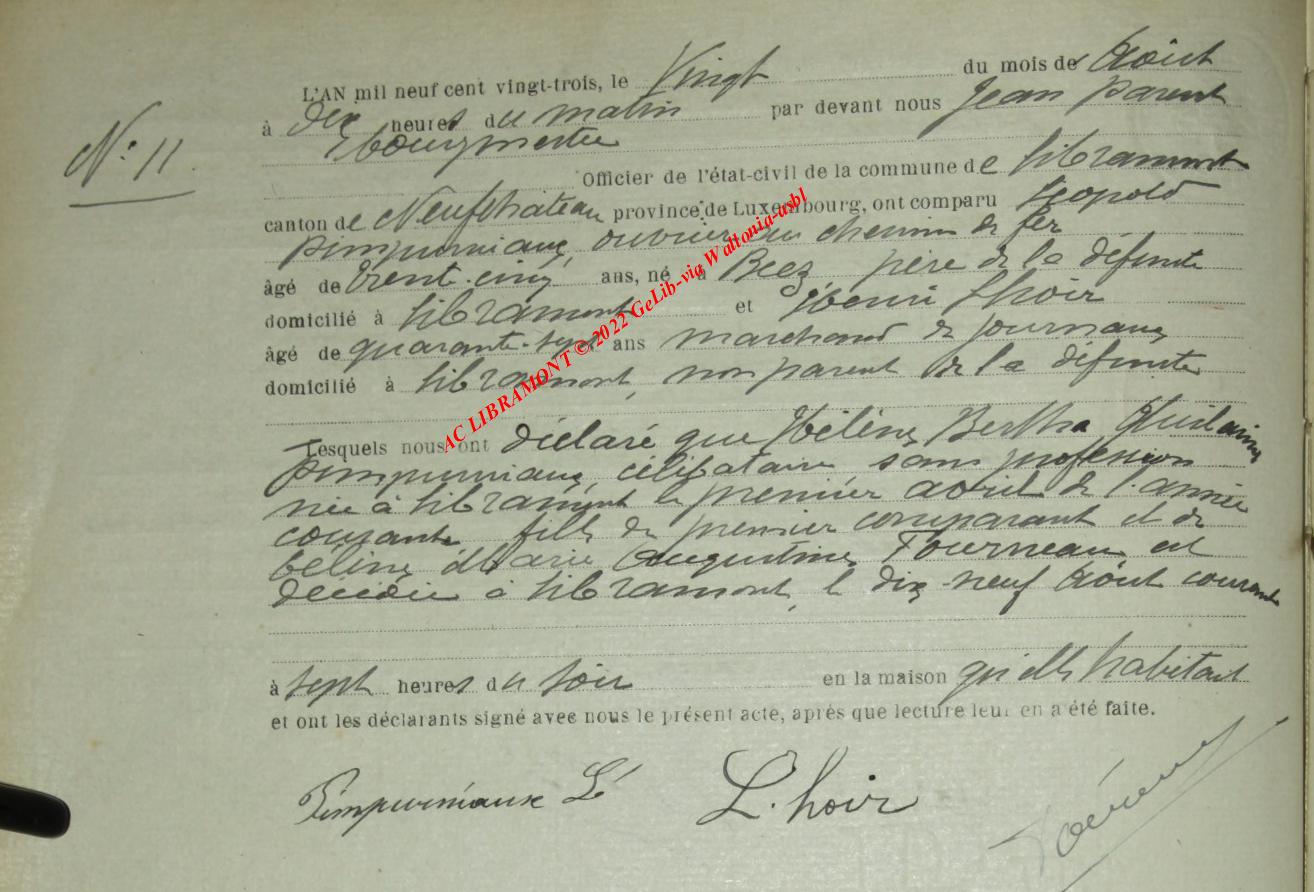 L'AN mil neuf cent vingt-trois, le Vingt du mois de Août
à Dix heures du matin par devant nous Jean Parent
Bourgmestre
N° 11
Officier de l'état-civil de la commune de Libramont
canton de Neufchateau province de Luxembourg, ont comparu Léopold
Pimpurniaux, ouvrier au chemin de fer
âgé de trente-cinq ans, né à Beez père de la défunte
domicilié à Libramont et Henri Lhoir
âgé de quarante-sept ans marchand de journaux
domicilié à Libramont, non parent de la défunte
Lesquels nous ont déclaré que Hélène Bertha Ghislaine
Pimpurniaux, célibataire sans profession
née à Libramont le premier avril de l'année
courante fille du premier comparant et de
Céline Marie Augustine Tourneau est
décédée à Libramont, le dix-neuf Août courant
à sept heures du soir en la maison qu'elle habitait
et ont les déclarants signé avec nous le présent acte, après que lecture leur en a été faite.
Pimpurniaux Ld L.hoir
AC LIBRAMONT © 2022 GeLib-via Waltonia-asbl